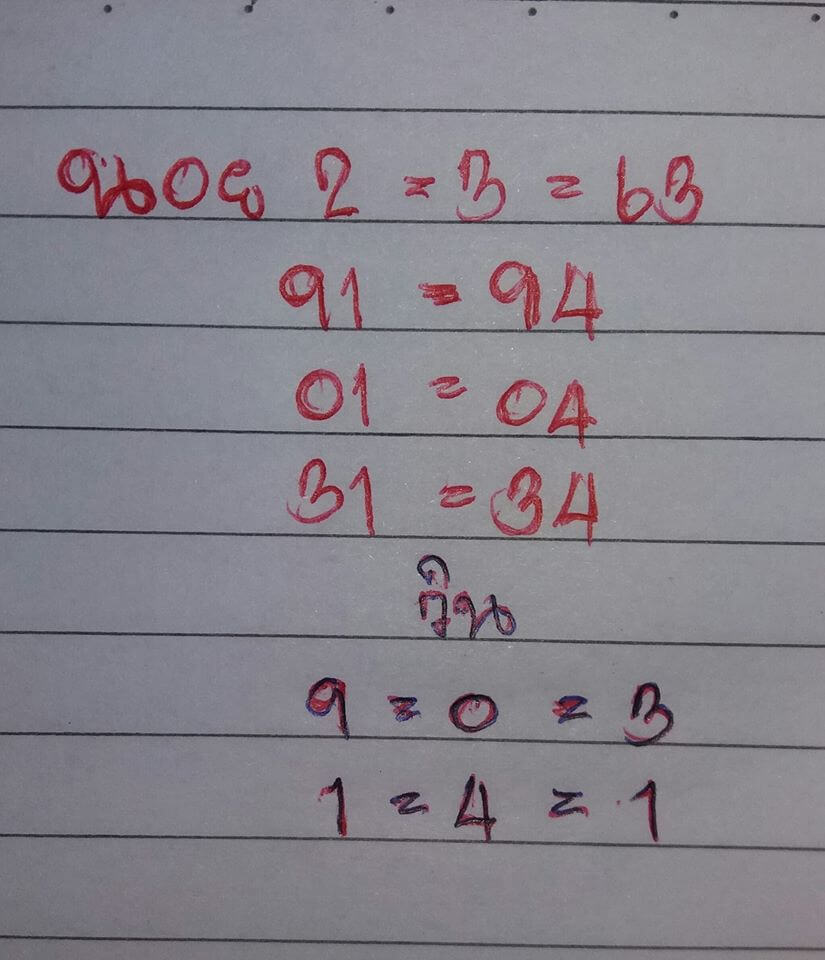 2 = 3 = 63
91 = 94
01 = 04
31 = 34
วิน
9 = 0 = 3
1 = 4 = 1